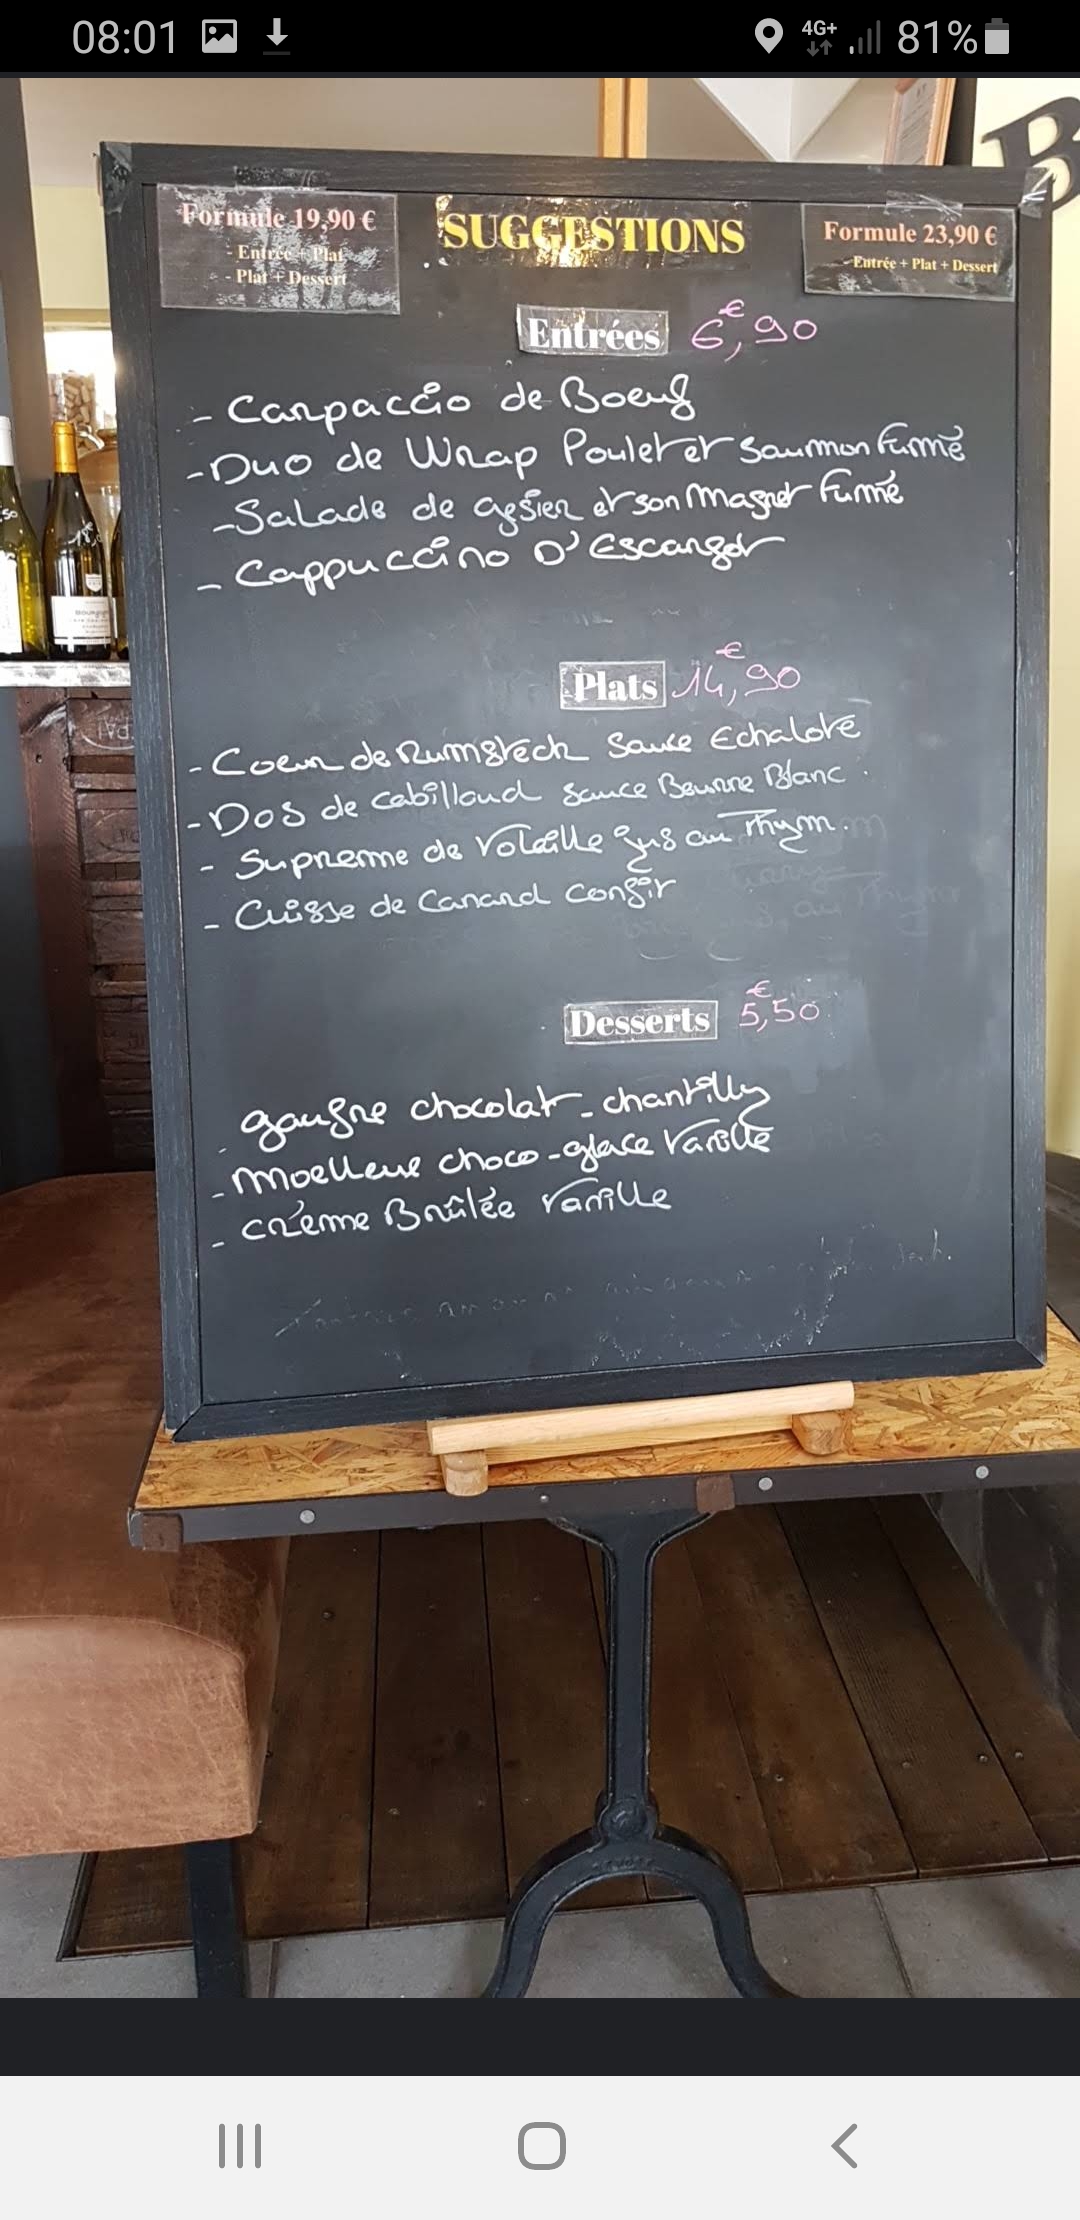 08:01
4G+ 81%
B
Formule 19,90 €
- Entrée + Plat
- Plat + Dessert
SUGGESTIONS
Formule 23,90 €
- Entrée + Plat + Dessert
Entrées 6,90 €
- Carpaccio de Boeuf
- Duo de Wrap Poulet et Saumon Fumé
- Salade de gésier et son Magret Fumé
- Cappuccino D'Escargot
Plats 14,90 €
- Coeur de Rumsteck Sauce Echalote
- Dos de Cabillaud Sauce Beurre Blanc.
- Supreme de Volaille jus au Thym.
- Cuisse de Canard Confit
Desserts 5,50 €
- gaufre chocolat - chantilly
- Moelleux choco - glace Vanille
- crème Brûlée Vanille